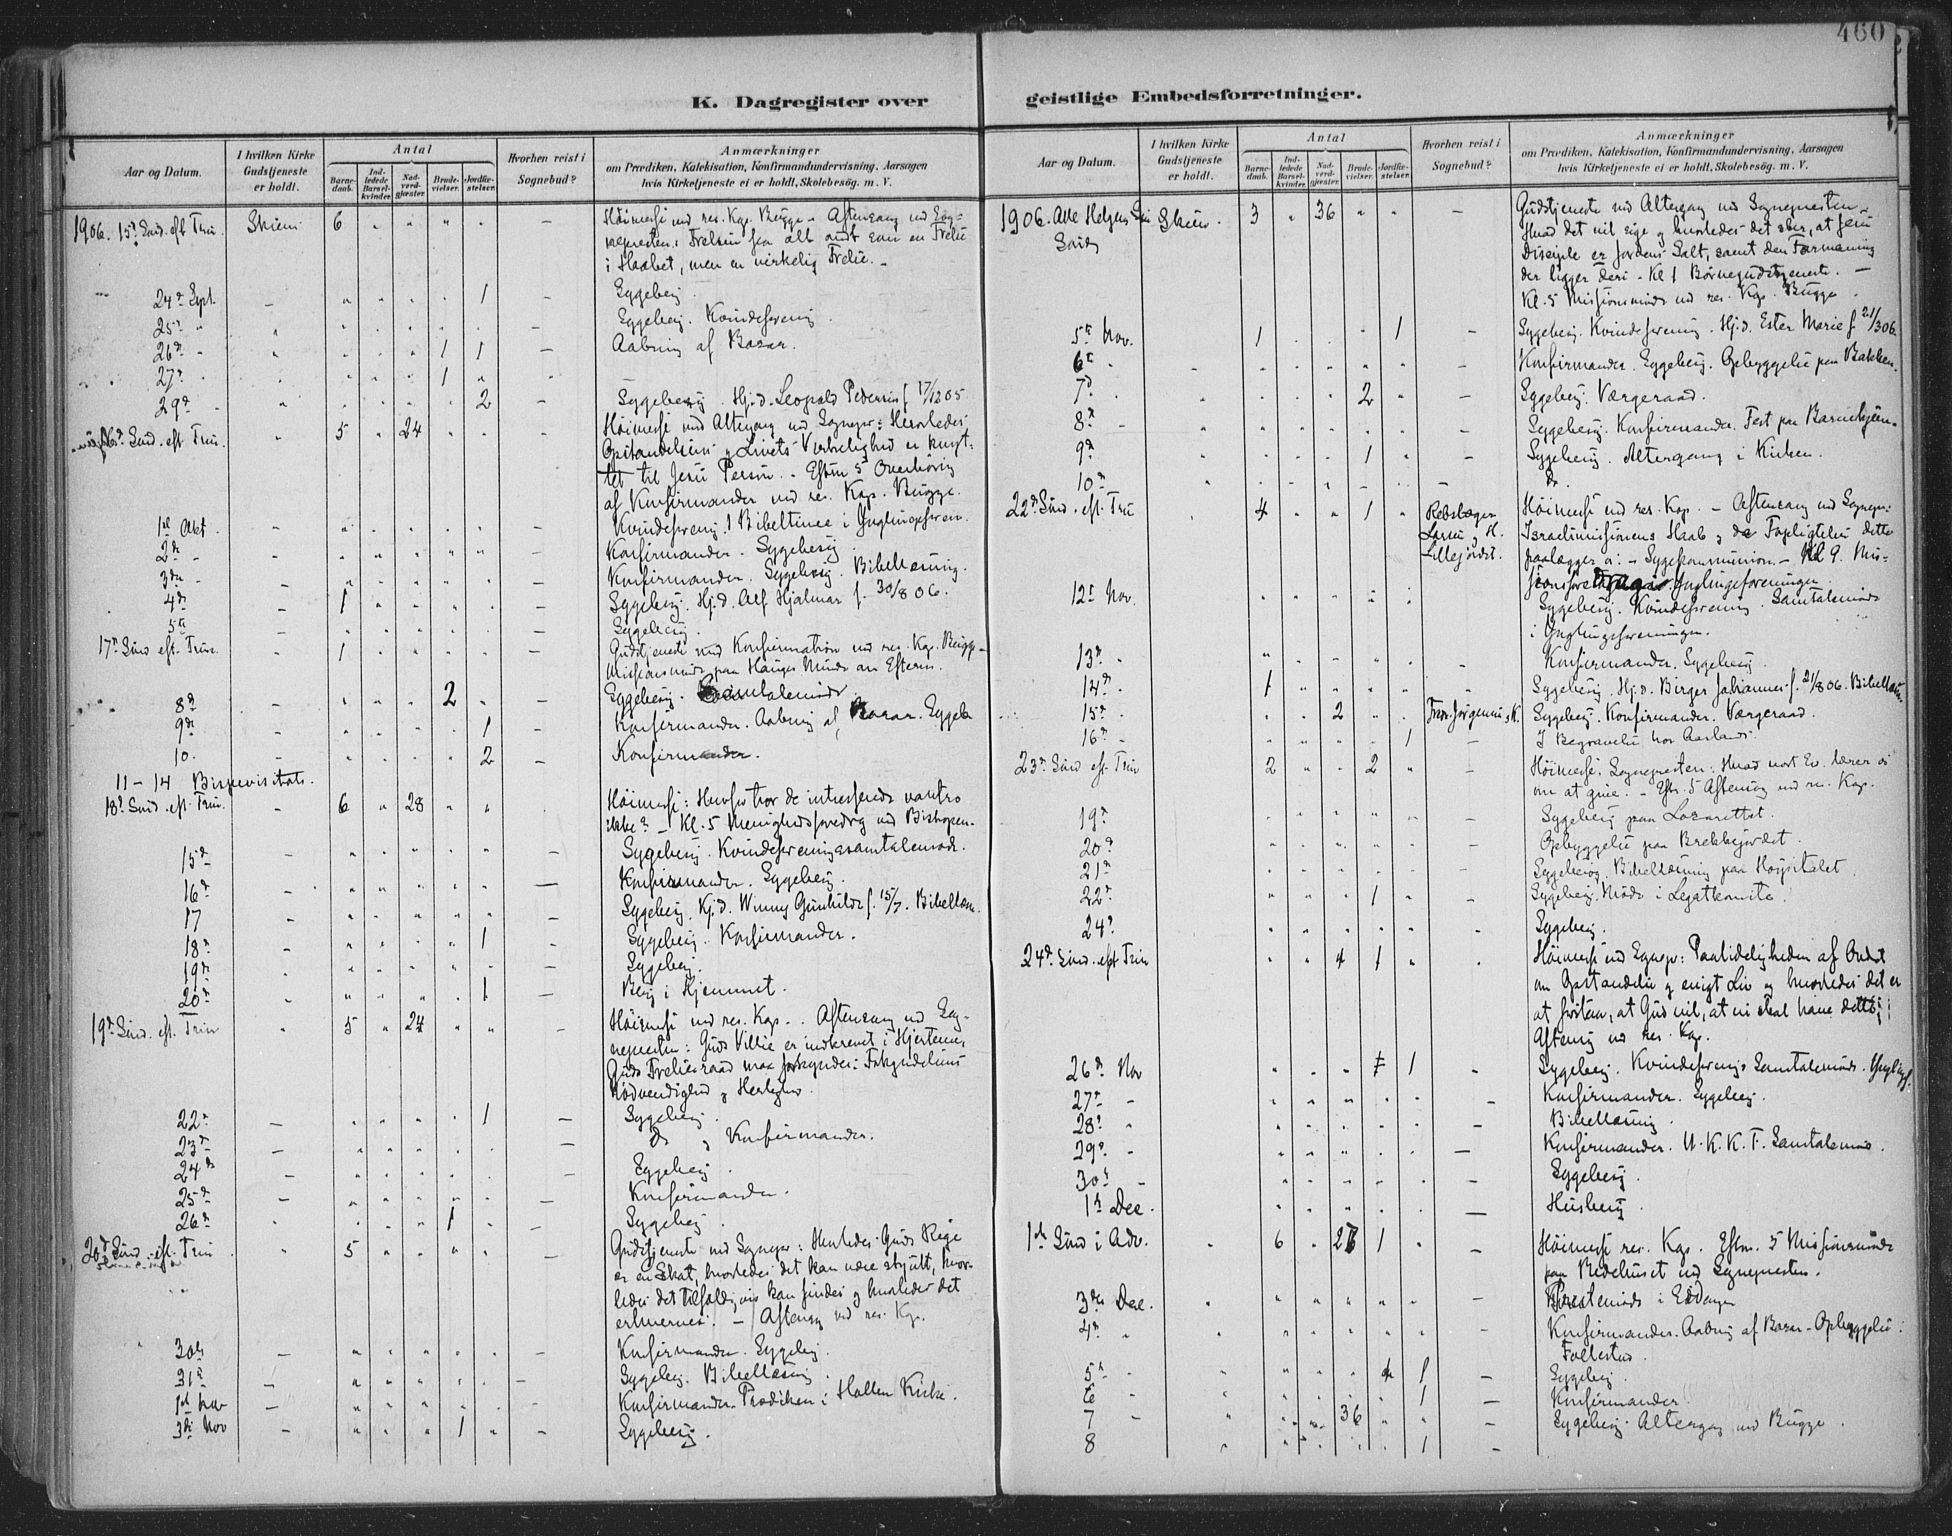 460
K. Dagregister over
geistlige Embedsforretninger.
Aar og Datum.
I hvilken Kirke Gudstjeneste er holdt.
Antal
Barne-daab.
Ind-ledede Barsel-kvinder.
Nad-verd-gjæster.
Brude-vielser.
Jordfæ-stelser.
Hvorhen reist i Sognebud?
Anmærkninger
om Prædiken, Katekisation, Konfirmandundervisning, Aarsagen
hvis Kirketjeneste ei er holdt, Skolebesøg. m. V.
1906. 15de Sønd. eft Trin. Skien 6 " " " " — Høimesse ved res. Kap. Bugge. Aftensang ved Sog-
nepresten: Frelsen fra alt ondt som en Frelse
i Haabet, men en virkelig Frelse. —
24de Sept. — " " " " 1 — Sygebesøg.
25de " " " " " " " — Sygebesøg. Kvindeforening.
26de " " " " " 1 1 — Aabning af Bazar.
27de " " " " " 1 " —
29de " " " " " " 2 — Sygebesøg. Hj.d. Leopold Pedersen f 17/12 05
16de Sønd. eft. Trin. " 5 " 24 " " — Høimesse med Altergang ved Sognepr: Hvorledes
Opstandelsens og Livets Virkelighed er knyt-
tet til Jesu Person. - Eftm 5 Overhøring
af Konfirmander ved res. Kap. Bugge.
1ste Okt. — Kvindeforening. 1 Bibeltime i Ynglingeforen.
2den " — Konfirmander. Sygebesøg.
3die " — Konfirmander. Sygebesøg. Bibellæsning.
4de — 1 Sygebesøg. Hj.d. Alf Hjalmar f. 30/8 06.
5te — Sygebesøg.
17de Sønd eft. Trin. — 1 Gudstjeneste med Konfirmation ved res. Kap. Bugge -
Missionsmøde paa Hauges Minde om Efterm.
8de — 2 Sygebesøg. Samtalemøde
9de — 1 — Konfirmander. Aabning af Bazar. Sygeb.
10. — 2 — Konfirmander.
11 - 14 Bispevisitats.
18de Sønd. eft Trin. — 6 " 28 " " Høimesse: Hvorfor tror de interesserede vantro
ikke? — Kl. 5 Menighedsforedrag ved Bishopen.
15de — Sygebesøg. Kvindeforeningssamtalemøde.
16de — Konfirmander. Sygebesøg.
17 — Sygebesøg. Hj.d. Winny Gunhilde f. 15/7. Bibellæsn.
18de — 1 — Sygebesøg. Konfirmander.
19de — Sygebesøg.
20de 1 — Besøg i Hjemmet.
19de Sønd. eft. Trin " 5 " 24 " " — Høimesse ved res. Kap. . Aftensang ved Sog-
nepresten: Guds Villie er indskrevet i Hjerterne,
Guds Frelsesraad maa forkyndes: Forkyndelsens
Nødvendighed og Herlighed.
22de — 1 — Sygebesøg.
23de — Do og Konfirmander.
24de — Sygebesøg.
25de — Konfirmander.
26de 1 Sygebesøg.
20de Sønd. eft. Trin " 5 " " " " Gudstjeneste ved Sognepr: Hvorledes Guds Rige
er en Skat, hvorledes det kan være skjult, hvor-
ledes det tilfældigvis kan findes og hvorledes det
erhverves. — Aftensang ved res. Kap.
30de — Konfirmander. Sygebesøg.
31te — Sygebesøg. Bibellæsning.
1ste Nov — Konfirmander. Prædiken i Hollen Kirke.
3die Nov — 1 " — Sygebesøg.
Aar og Datum.
I hvilken Kirke Gudstjeneste er holdt.
Antal
Barne-daab.
Ind-ledede Barsel-kvinder.
Nad-verd-gjæster.
Brude-vielser.
Jordfæ-stelser.
Hvorhen reist i Sognebud?
Anmærkninger
om Prædiken, Katekisation, Konfirmandundervisning, Aarsagen
hvis Kirketjeneste ei er holdt, Skolebesøg. m. V.
1906. Alle Helgens Skien. 3 " 36 " " — Gudstjeneste med Altergang ved Sognepresten -
Sønd. Hvad det vil sige og hvorledes det sker, at Jesu
Disciple er Jordens Salt, samt den Formaning
der ligger deri - Kl 1 Børnegudstjeneste. —
Kl. 5 Missionsmøde ved res. Kap. Bugge.
5te Nov. 1 1 — Sygebesøg. Kvindeforening. Hj.d. Ester Marie f. 21/3 06.
6te " Konfirmander. Sygebesøg. Opbyggelse paa Bakken.
7de 2 " — Sygebesøg. Værgeraad.
8de — Sygebesøg. Konfirmander. Fest paa Barnehjem-
9de 1 — Sygebesøg. Altergang i Kirken.
10de — Do.
22de Sønd. eft. Trin 4 " " 1 " Rebslager Høimesse ved res. Kap. — Aftensang ved Sognepr:
Larsen og H. Israelsmissionens Haab og de Forpligtelser dette
Lillejordet. paalægger os: — Sygekommunion. — Kl 9. Mis-
sionsforedrag i Ynglingeforeningen.
12te Nov. Sygebesøg. Kvindeforening. Samtalemøde
i Ynglingeforeningen.
13de " — Konfirmander. Sygebesøg.
14de " 1 Sygebesøg. Hj.d. Birger Johannes f. 21/8 06. Bibellæsn.
15de " 2 Sygebesøg. Konfirmander. Værgeraad.
16de " 1 — I Begravelse hos Aarlands.
23de Sønd eft Trin 2 " " 2 " — Høimesse. Sognepresten: Hvad vort Ev. lærer os
om at give. — Eftr. 5 Aftensang ved res. Kap.
19de Sygebesøg paa Lazarettet.
20de Opbyggelse paa Brekkejordet.
21de Sygebesøg. Bibellæsning paa Hospitalet.
22de 1 Sygebesøg. Møde i Legatkomite.
24de Sygebesøg.
24de Sønd. eft Trin " " 4 1 " Høimesse ved Sognepr: Paalideligheden af Ordet
om Opstandelse og evigt Liv og hvorledes det er
at fristen, at Gud vil, at vi skal have dette;
Aftensang ved res. Kap.
26de Nov 1 Sygebesøg. Kvindeforenings Samtalemøde. Ynglingf.
27de " — Konfirmander. Sygebesøg.
28de " Bibellæsning.
29de " — Konfirmander. U. K. K. F. Samtalemøde.
30te " — Sygebesøg.
1ste Dec. — Husbesøg.
1ste Sønd i Adv. " 6 " 26 1 " — Høimesse res. Kap. Eftm. 5 Missionsmøde
paa Bedehuset ved Sognepresten.
3die Dec. Præstemøde i Eidanger
4de " — Konfirmander. Aabning af Bazar - Opbyggelse:
Follestad.
5te " 1 — Sygebesøg.
6 " 1 — Konfirmander.
7 " 36 — Sygebesøg. Altergang ved Bugge.
8 1 —